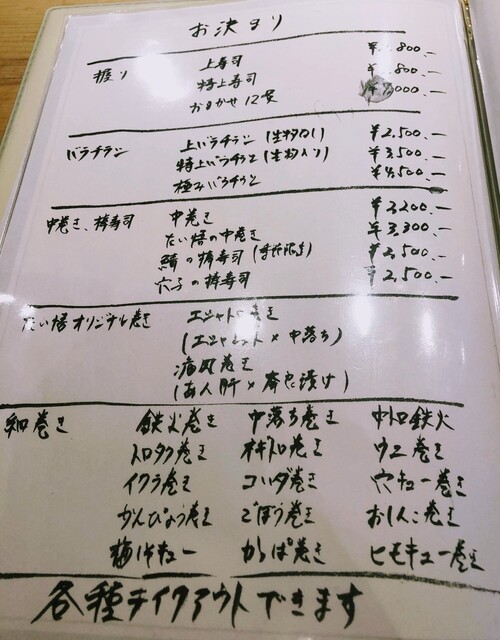 お決まり
握り 上寿司 800.-
特上寿司 800.-
おまかせ12貫 000.-
バラチラシ 上バラチラシ (生物なし) ¥2,500.-
特上バラチラシ (生物入り) ¥3,500.-
極みバラチラシ ¥4,500.-
中巻き、棒寿司 中巻き ¥2,200.-
たい悟の中巻き ¥3,300.-
鯖の棒寿司 ¥2,500.-
穴子の棒寿司 ¥2,500.-
たい悟オリジナル巻き エシャトロ巻き
(エシャレット×中落ち)
痛風巻き
(あん肝×奈良漬け)
細巻き 鉄火巻き 中落ち巻き 中トロ鉄火
トロタク巻き ネギトロ巻き ウニ巻き
イクラ巻き コハダ巻き 穴キュー巻き
かんぴょう巻き ごぼう巻き おしんこ巻き
梅しそキュー かっぱ巻き ヒモキュー巻き
各種テイクアウトできます